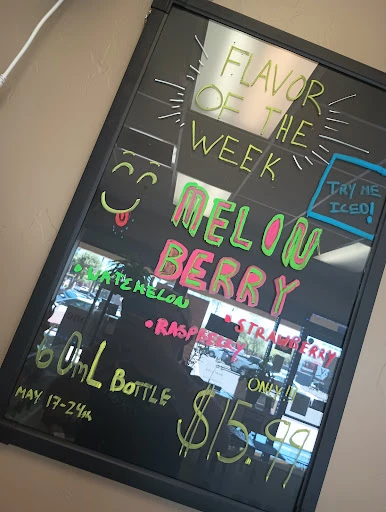 FLAVOR
OF THE
WEEK
TRY ME
ICED!
MELON
BERRY
• WATEMELON
• STRAWBERRY
• RASPBERRY
60mL BOTTLE
MAY. 17-24th
ONLY!!
$15.99